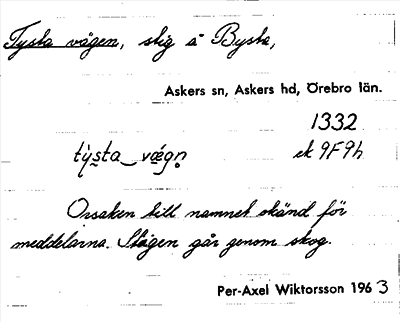 Tysta vägen, stig å Bysta,
Askers sn, Askers hd, Örebro län.
1332
tỳsta vǽgn̥ ek 9F9h
Orsaken till namnet okänd för
meddelarna. Stigen går genom skog.
Per-Axel Wiktorsson 1963